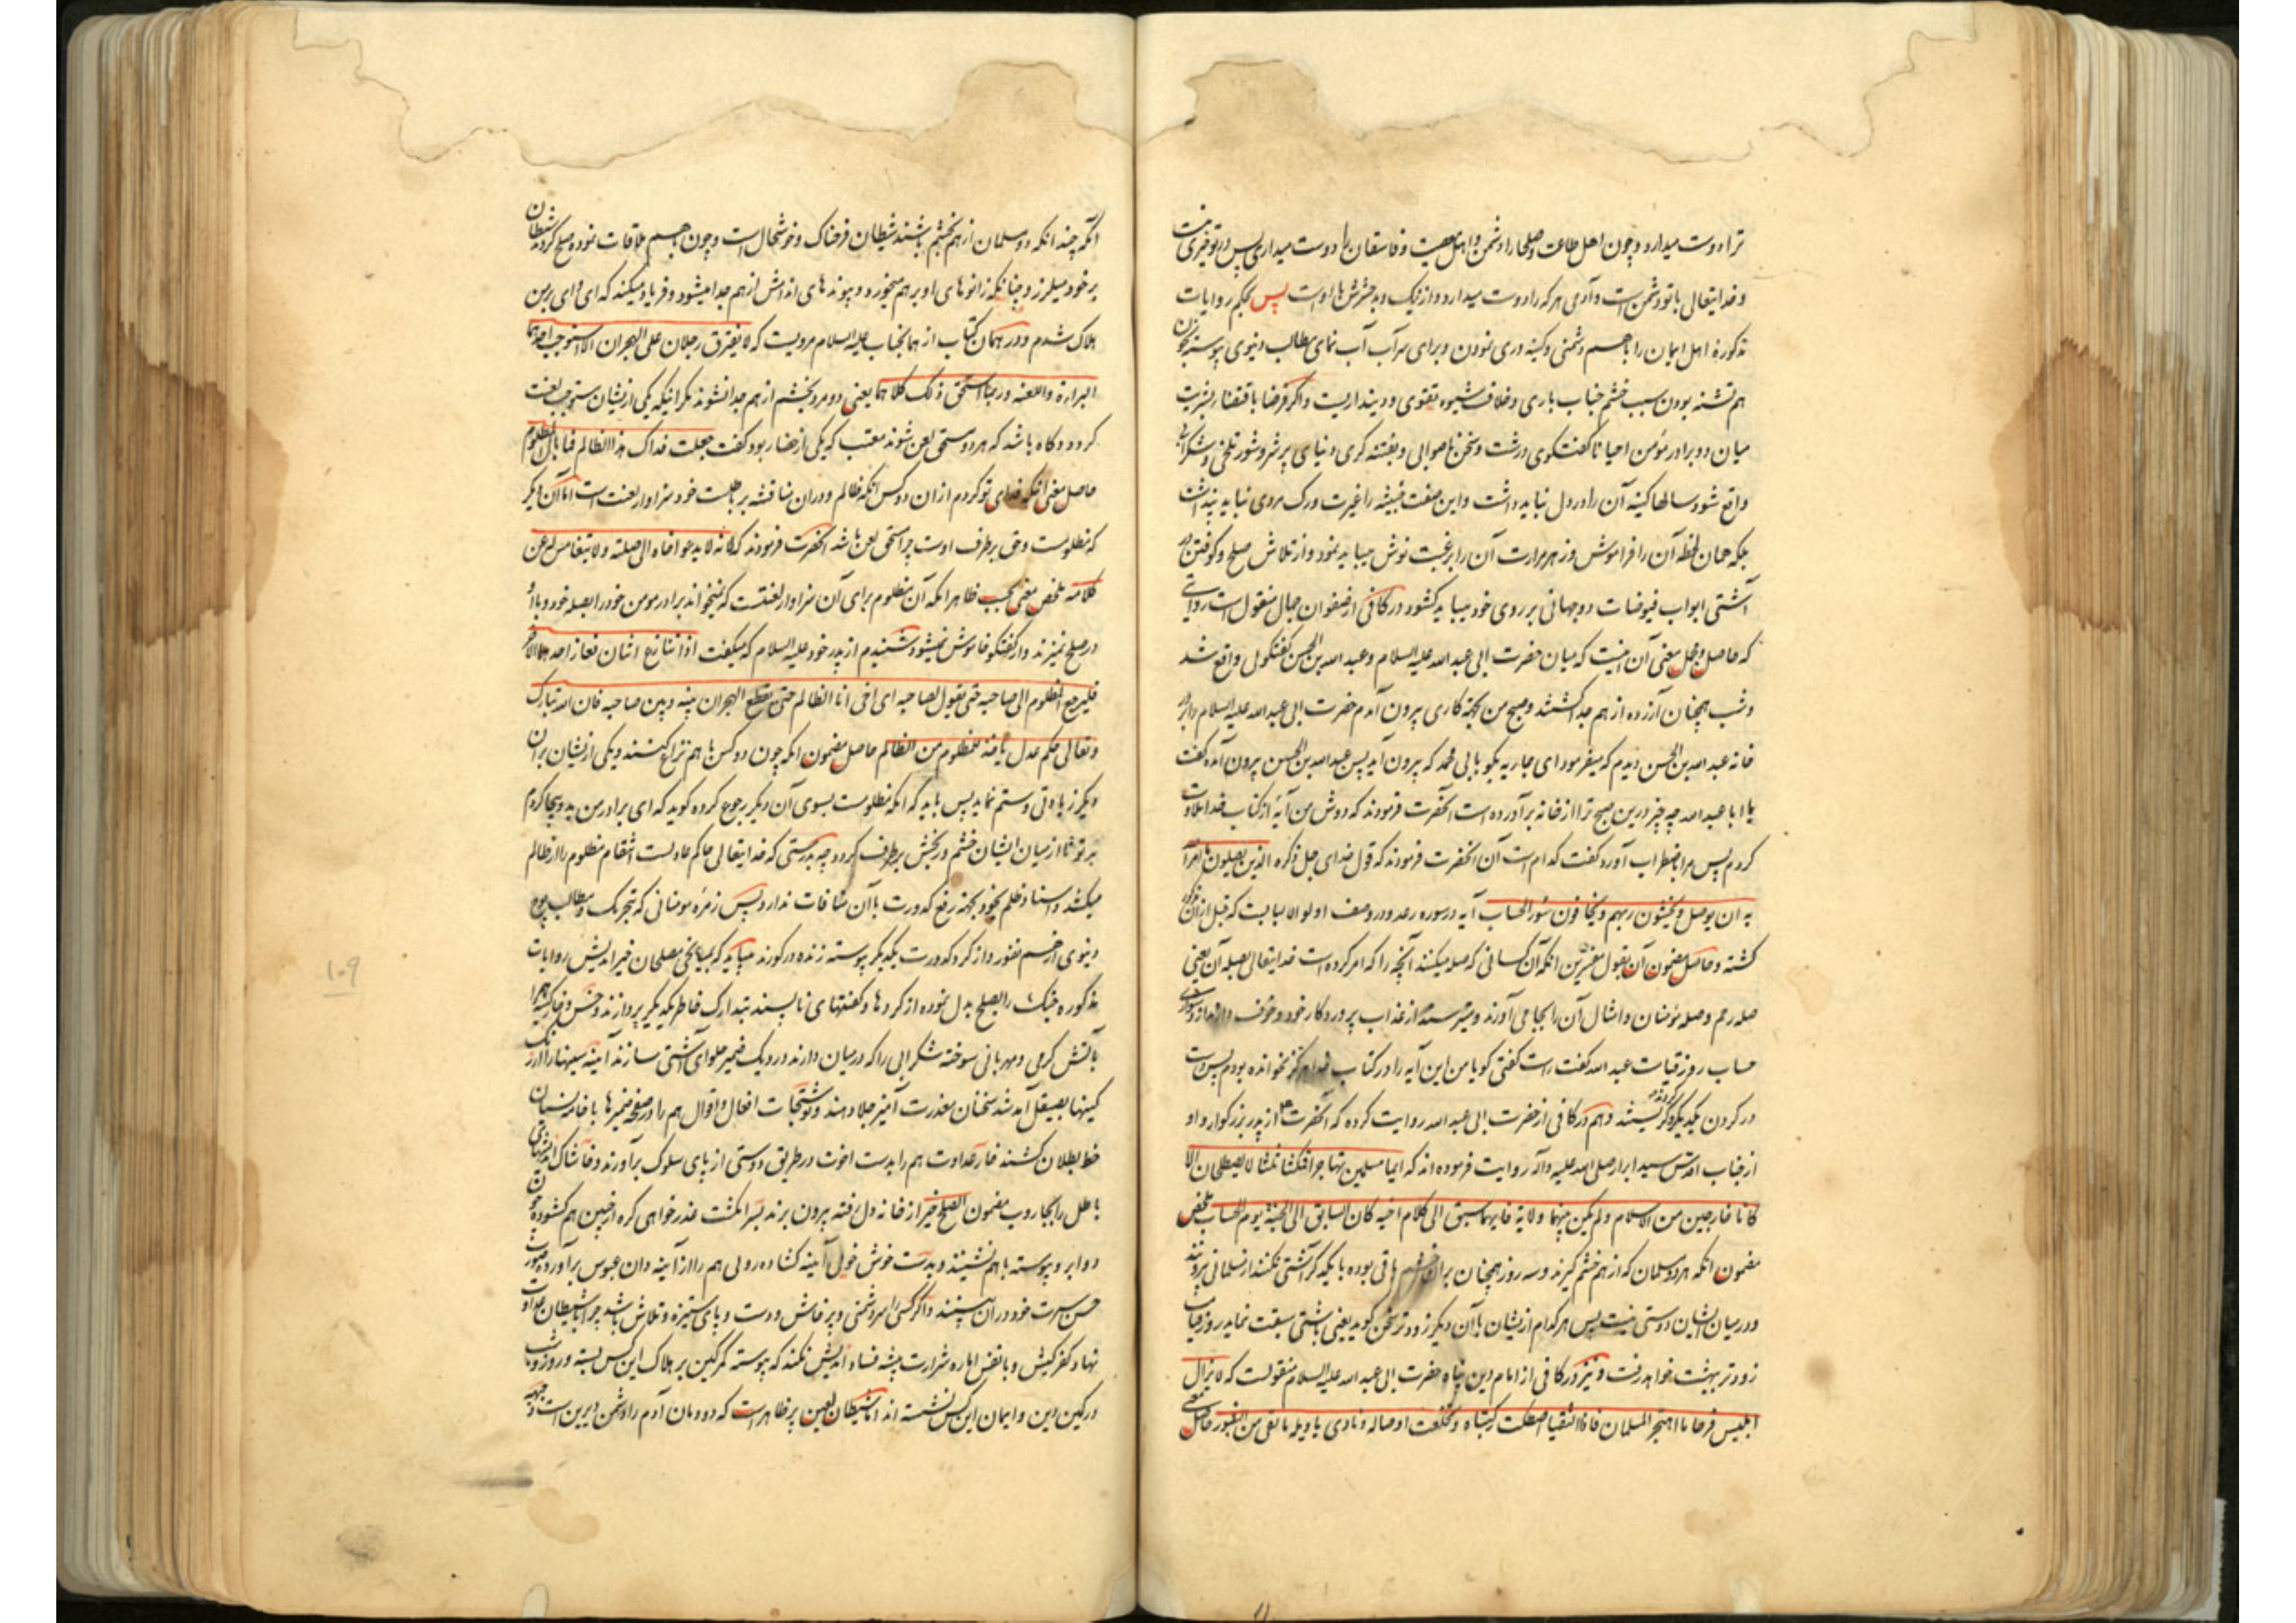 ترا دوست میدارد و چون اهل طاعت و صلحا را دشمن و اهل معصیت و فاسقان را دوست میداری پس در تو خیری نیست
و خدایتعالی با تو دشمن است و آدمی هر که را دوست میدارد و از نیک و بد حشرش با اوست پس بحکم روایات
مذکوره اهل ایمان را با هم دشمنی و کینه وری نمودن و برای سرآب آب نمای مطالب دنیوی پیوسته بخون
هم تشنه بودن سبب خشم جناب باری و خلاف شیوه تقوی و دینداریست و اگر فرضا باقتضاء بشریت
میان دو برادر مؤمن احیانا گفتگوی درشت و سخن ناصوابی و بفتنه گری دنیای پر شر و شور تلخی و شکرابی
واقع شود سالها کینه آن را در دل نباید داشت و این صفت خبیثه را غیرت و رک مردی نباید پنداشت
بلکه همان لحظه آن را فراموش و زهر مرارت آن را برغبت نوش میباید نمود و از تلاش صلح و کوفتن در
آشتی ابواب فیوضات دوجهانی بر روی خود میباید کشود در کافی از صفوان جمال منقول است روایتی
که حاصل و مجمل معنی آن اینست که میان حضرت ابی عبد الله علیه السلام و عبد الله بن الحسن گفتگوئی واقع شد
و شب همچنان آزرده از هم جدا گشتند و صبح من بجهة کاری بیرون آمدم حضرت ابی عبد الله علیه السلام را بر در
خانه عبد الله بن الحسن دیدم که میفرمود ای جاریه بگو بابی محمد که بیرون آید پس عبد الله بن الحسن بیرون آمده گفت
یا ابا عبد الله چه چیز درین صبح ترا از خانه برآورده است آنحضرت فرمودند که دوش من آیۀ از کتاب خدا تلاوت
کردم پس مرا باضطراب آورد گفت کدام است آن آنحضرت فرمودند که قول خدای جل ذکره الذین یصلون ما امر الله
به ان یوصل و یخشون ربهم و یخافون سوء الحساب آیه در سوره رعد و در وصف اولو الالبابست که قبل از آن مذکور
کشته و حاصل مضمون آن بقول مفسرین آنکه آن کسانی که صله میکنند آنچه را که امر کرده است خدایتعالی بصله آن یعنی
صله رحم و صله مؤمنان و امثال آن را بجا می آورند و میترسند از عذاب پروردکار خود و خوف دارند از سوء
حساب روز قیامت عبد الله گفت راست گفتی کویا من این آیه را در کتاب خدا هرگز نخوانده بودم پس دست
در کردن یکدیکر کرده گریستند و هم در کافی از حضرت ابی عبد الله روایت کرده که آنحضرت از پدر بزرکوار و او
از جناب اقدس سید ابرار صلی الله علیه وآله روایت فرموده اند که ایما مسلمین تهاجرا فمکثا ثلثا لا یصطلحان الا
کانا خارجین من الاسلام ولم یکن بینهما ولایة فایهما سبق الی کلام اخیه کان السابق الی الجنة یوم الحساب ملخص
مضمون آنکه هر دو مسلمان که از هم خشم گیرند و سه روز همچنان بر آن خشم باقی بوده با یکدیکر آشتی نکنند از مسلمانی بیروند
و در میان ایشان دوستی نیست پس هر کدام از ایشان با آن دیکر زودتر سخن کوید یعنی باشتی سبقت نماید روز قیامت
زودتر ببهشت خواهد رفت و نیز در کافی از امام دین پناه حضرت ابی عبد الله علیه السلام منقولست که لا یزال
ابلیس فرحا ما اهتجر المسلمان فاذا التقیا اصطکت رکبتاه و تخلعت اوصاله و نادی یا ویله ما لقی من الثبور حاصل معنی
آنکه چندانکه دو مسلمان از هم بخشم باشند شیطان فرحناک و خوشحال است و چون با هم ملاقات نموده صلح کردند شیطان
بر خود میلرزد چنانکه زانوهای او بر هم میخورد و پیوندهای اندامش از هم جدا میشود و فریاد میکند که ای وای بر من
هلاک شدم و در همان کتاب از همانجناب علیه السلام مرویست که لا یفترق رجلان علی الهجران الا استوجب احدهما
البراءة واللعنة و ربما استحق ذلک کلاهما یعنی دو مرد بخشم از هم جدا نشوند مکر اینکه یکی از ایشان مستوجب لعنت
کردد و کاه باشد که هر دو مستحق لعن شوند معتب که یکی از حضار بود گفت جعلت فداک هذا الظالم فما بال المظلوم
حاصل معنی آنکه فدای تو کردم از آن دو کس آنکه ظالم و در آن مناقشه بر باطلست خود سزاوار لعنت است اما آن دیکر
که مظلومست و حق بر طرف اوست چرا مستحق لعن باشد آنحضرت فرمودند که لانه لا یدعو اخاه الی صلته و لا یتغامس له عن
کلامه ملخص معنی بحسب ظاهر آنکه آن مظلوم برای آن سزاوار لعنتست که نمیخواند برادر مومن خود را بصله خود و با او
در صلح نمیزند و از گفتگو خاموش نمیشود شنیدم از پدر خود علیه السلام که میگفت اذا تنازع اثنان فعاز احدهما الآخر
فلیرجع المظلوم الی صاحبه حتی یقول لصاحبه ای اخی انا الظالم حتی یقطع الهجران بینه و بین صاحبه فان الله تبارک
و تعالی حکم عدل یأخذ للمظلوم من الظالم حاصل مضمون آنکه چون دو کس با هم نزاع کنند و یکی از ایشان بر آن
دیکر زیادتی و ستم نماید پس باید که آنکه مظلومست بسوی آن دیکر رجوع کرده کوید که ای برادر من بد و بیجا کردم
بر تو تا از میان ایشان خشم و رنجش برطرف کردد چه بدرستی که خدایتعالی حاکم عادلست انتقام مظلوم را از ظالم
میکشد و اسناد ظلم بخود بجهة رفع کدورت با آن منافات ندارد پس زمره مومنانی که بتحریک مطالب
دنیوی از هم نفور و از کرد کدورت یکدیکر پیوسته زنده در کورند میباید که بمیانجی مصلحان خیراندیش روایات
مذکوره جنک را بصلح بدل نموده از کردها و گفتهای ناپسند بتدارک خاطر یکدیکر پردازند و خس و خار کینه
بآتش کرمی و مهربانی سوخته شکرابی را که در میان دارند در دیک ضمیر حلوای آشتی سازند آینه سینها را از زنک
کینها بصیقل آمد شد سخنان معذرت آمیز جلا دهند و نوشتجات افعال و اقوال هم را در صفحه ضمیرها بخامه نسیان
خط بطلان کشند خار عداوت هم را بدست اخوت در طریق دوستی از پای سلوک برآورند و خاشاک
باطل را بجاروب مضمون الصلح خیر از خانه دل رفته بیرون برند بسرانکشت عذرخواهی کره از جبین هم کشوده چون
دو ابرو پیوسته با هم نشینند و بدست خوش خوئی آینه کشاده روئی هم را از آینه دان عبوس برآورده صورت
حسن سیرت خود در آن بینند و اگر کسی را سر دشمنی و پرخاش و دست و پای ستیزه و تلاش باشد چرا با شیطان عداوت
نهاد کفر کیش و با نفس اماره شرارت پیشه فساد اندیش نکند که پیوسته کمر کین بر هلاک این کس بسته و روز و شب
در کمین دین و ایمان این کس نشسته اند اما شیطان لعین پر ظاهر است که دودمان آدم را دشمن دیرین است
۱۰۹